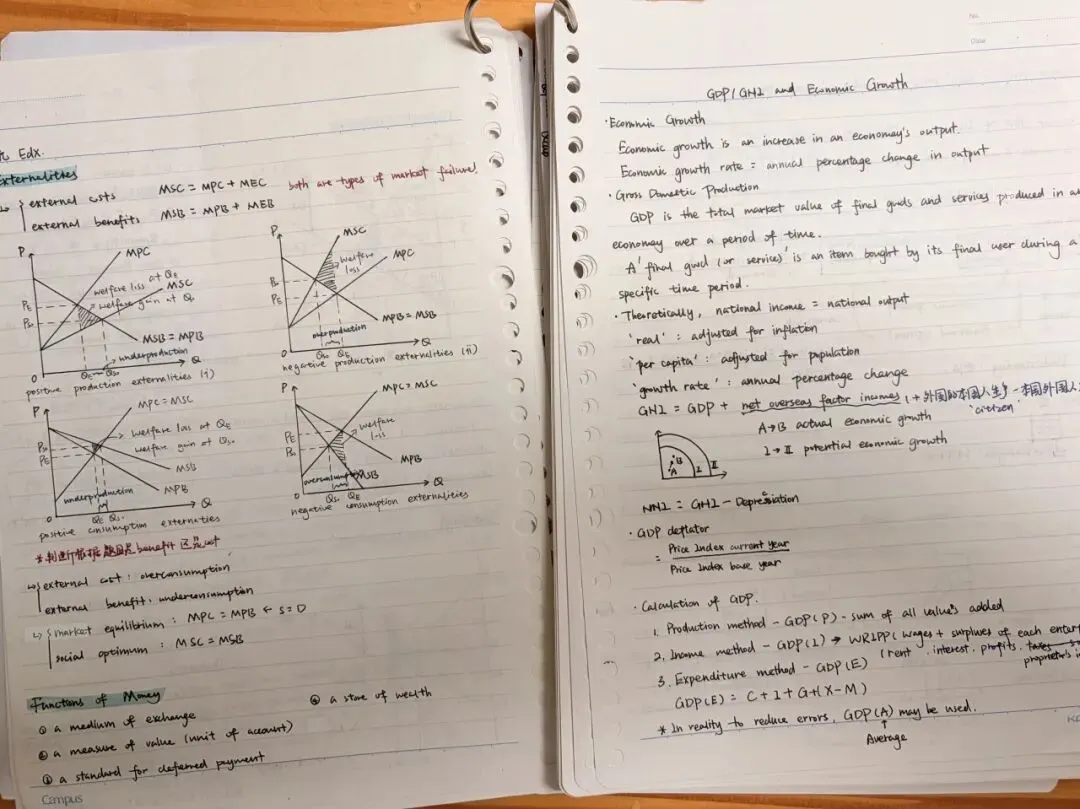 Edx.
Externalities
external costs MSC = MPC + MEC both are types of market failure!
external benefits MSB = MPB + MEB
P
MPC
welfare loss at QE
MSC
welfare gain at Q
PE
MSB = MPB
underproduction
0 QE Q
positive production externalities (i)
P
MSC
welfare
loss
MPC
PE
MPB = MSB
overproduction
0 QE Q
negative production externalities (ii)
P
MPC = MSC
welfare loss at QE
welfare gain at Qso
PE
MSB
MPB
underproduction
0 QE Q
positive consumption externaties
P
MPC = MSC
welfare
loss
PE
MPB
MSB
overconsumption
0 QE Q
negative consumption externalities
benefit 还是 cost
external cost : overconsumption
external benefit : underconsumption
market equilibrium : MPC = MPB ← S = D
social optimum : MSC = MSB
Functions of Money
① a medium of exchange
② a measure of value (unit of account)
③ a standard for deferred payment
④ a store of wealth
Campus
No.
Date
GDP/GNI and Economic Growth
· Economic Growth
Economic growth is an increase in an economay's output.
Economic growth rate = annual percentage change in output
· Gross Domestic Production
GDP is the total market value of final goods and services produced in
economy over a period of time.
A 'final good (or services)' is an item bought by its final user during a
specific time period.
· Theoretically, national income = national output
'real' : adjusted for inflation
'per capita' : adjusted for population
'growth rate' : annual percentage change
GNI = GDP + net overseas factor incomes (+ 外国的本国人生产 - 本国外国人
'citizen'
A→B actual economic growth
I→II potential economic growth
B
A
I II
NNI = GNI - Depreciation
· GDP deflator
= Price Index current year
Price Index base year
· Calculation of GDP.
1. Production method - GDP(P) - sum of all value's added
2. Income method - GDP(I) → WRIPP (wages + surpluses of each
(rent . interest . profits . taxes
proprietor's
3. Expenditure method - GDP(E)
GDP(E) = C + I + G + (X - M)
* In reality to reduce errors, GDP(A) may be used.
Average